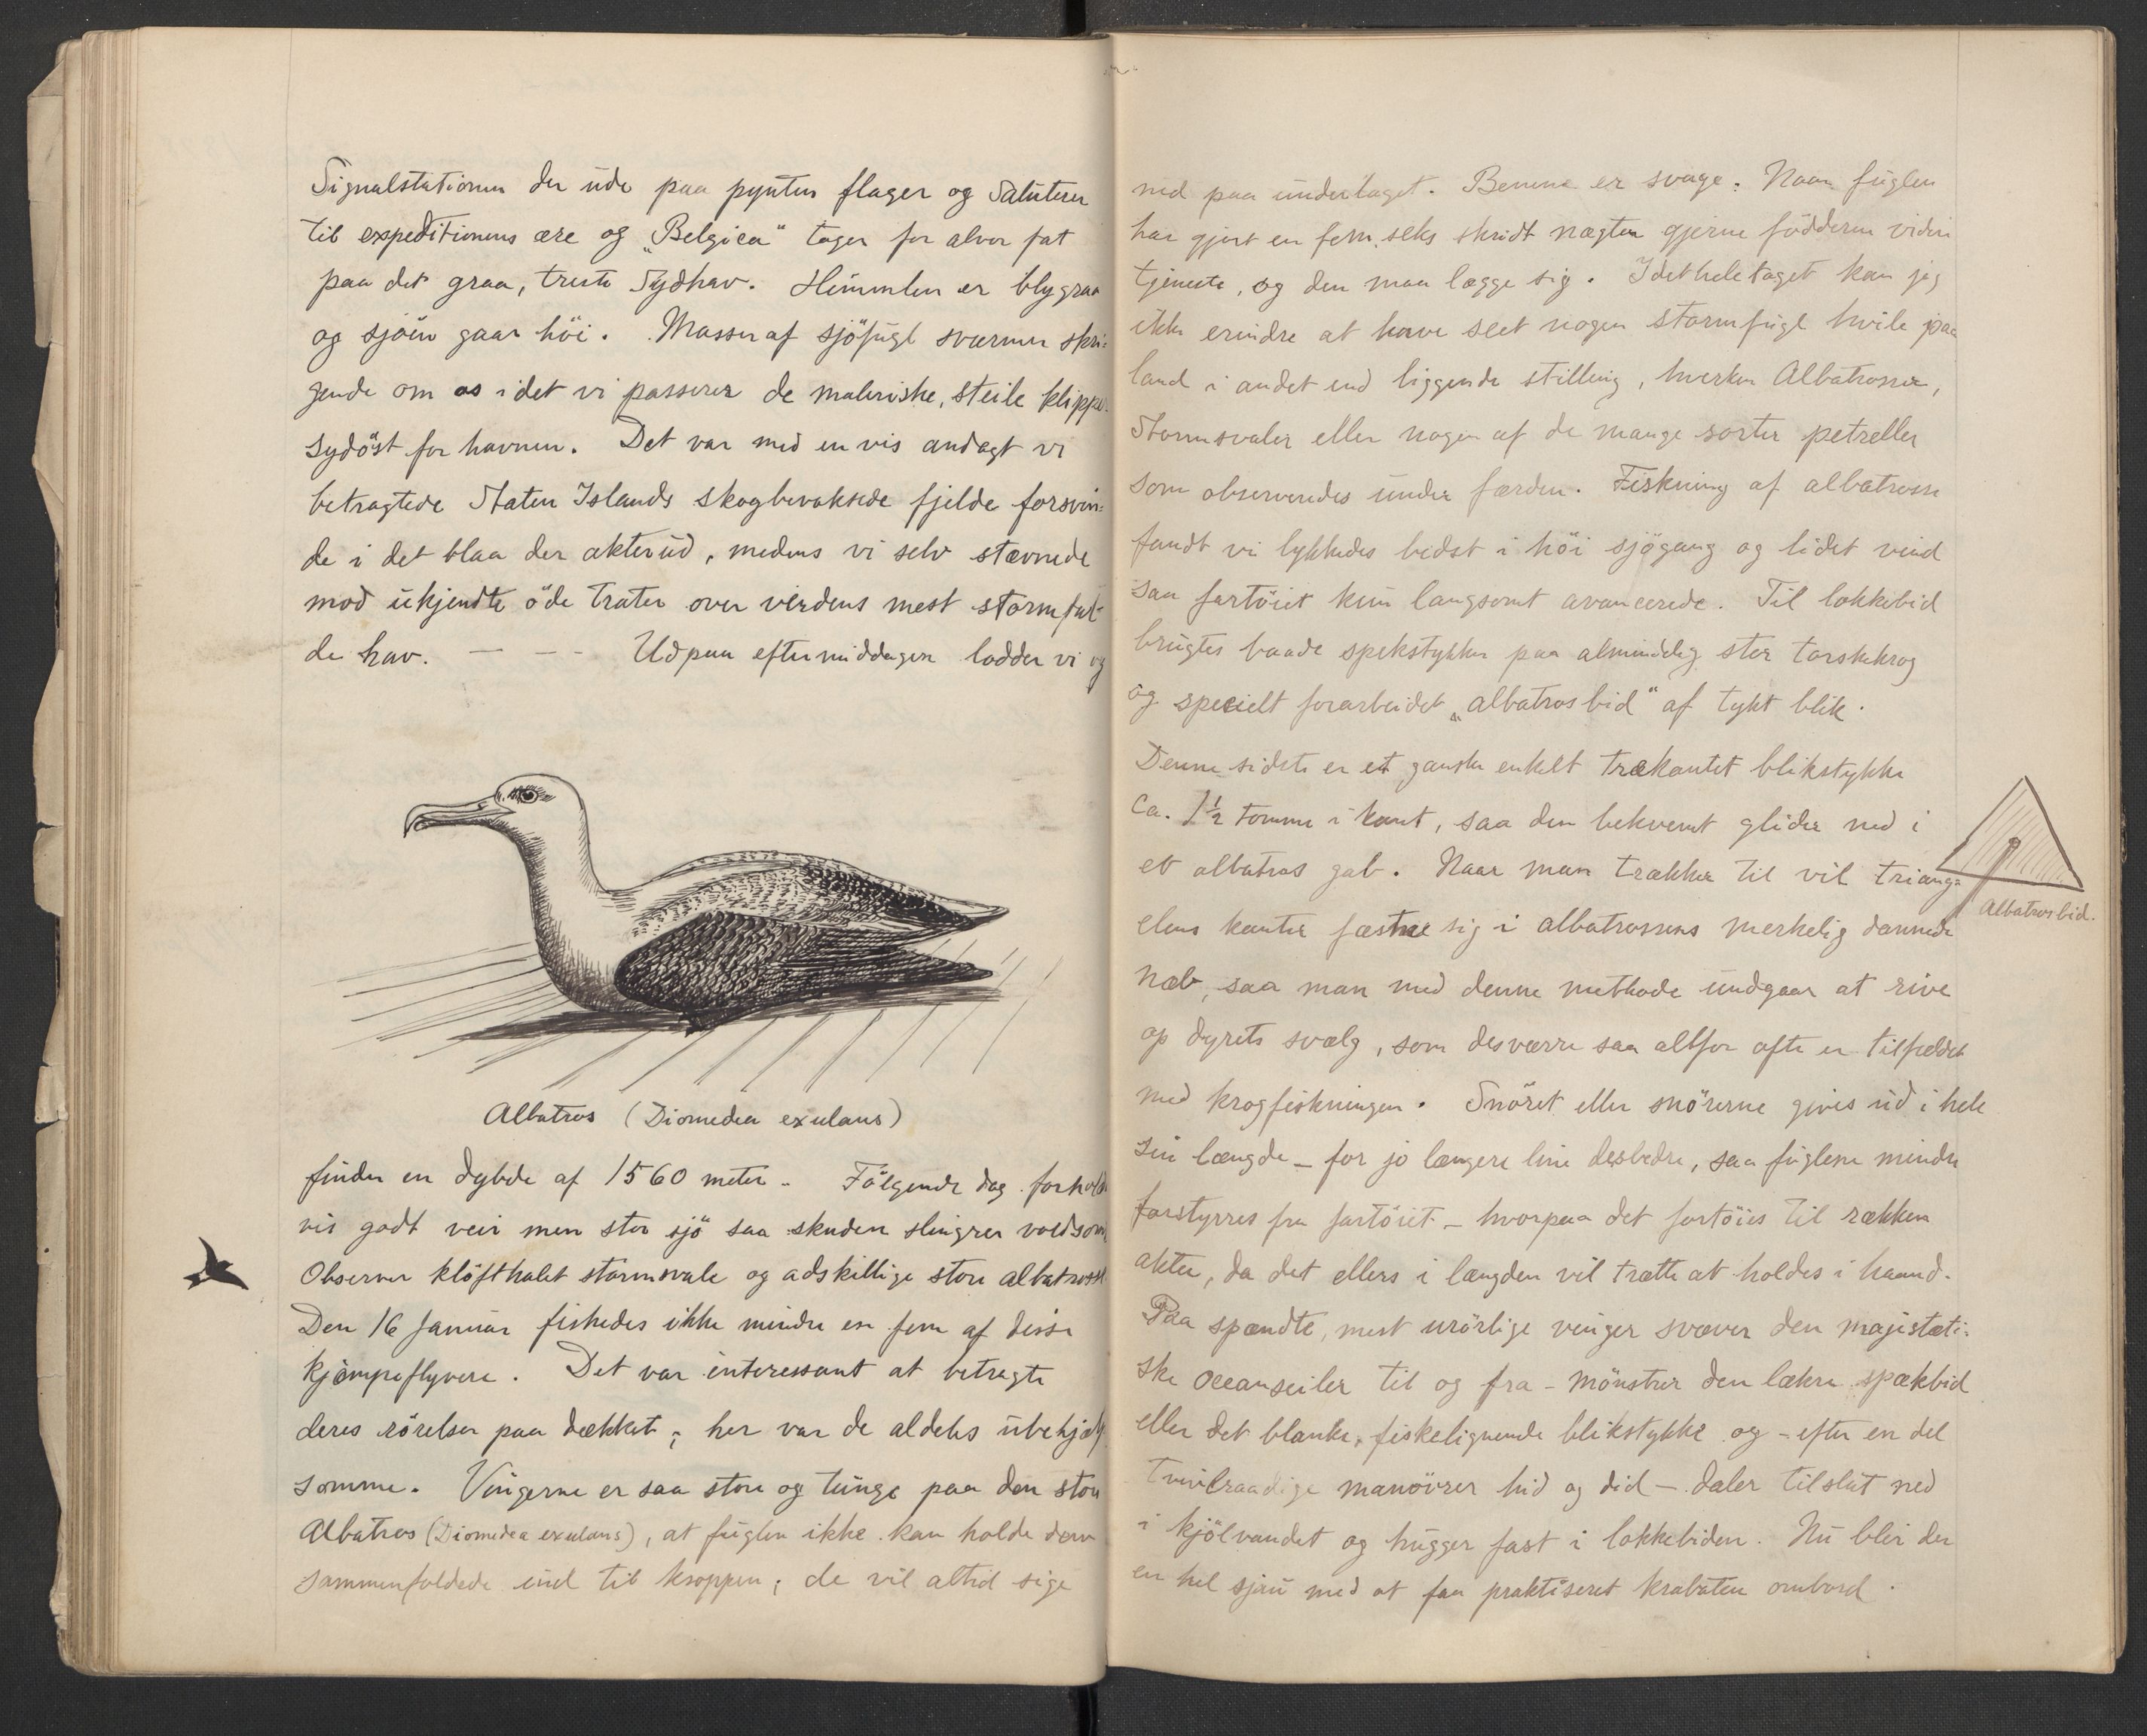 Signalstationen der ude paa pynten flager og Saluterer
til expeditionens ære og „Belgica" tager for alvor fat
paa det graa, triste Sydhav. Himmlen er blygraa
og sjöen gaar höi. Masser af sjöfugl sværmer skri-
gende om os idet vi passerer de maleriske, steile klipper
sydöst for havnen. Det var med en vis andagt vi
betragtede Staten Islands skogbevoksede fjelde forsvin-
de i det blaa der akterud, medens vi selv stævnede
mod ukjendte öde trakter over verdens mest stormful-
de hav. — — — Udpaa eftermiddagen lodder vi og
Albatros (Diomedea exulans)
finder en dybde af 1560 meter. Fölgende dag forholds
vis godt veir men stor sjö saa skuden slingrer voldsomt
Observer klöfthalet stormsvale og adskillige store albatrosse
Den 16 Januar fiskedes ikke mindre en fem af disse
kjæmpeflyvere. Det var interessant at betragte
deres rörelser paa dækket; her var de aldeles ubehjælp
somme. Vingerne er saa store og tunge paa den store
Albatros (Diomedea exulans), at fuglen ikke kan holde dem
sammenfoldede ind til kroppen; de vil altid sige
ned paa underlaget. Benene er svage. Naar fuglen
har gjort en fem, seks skridt nægter gjerne födderne videre
tjeneste, og den maa lægge sig. Idetheletaget kan jeg
ikke erindre at have seet nogen stormfugl hvile paa
land i andet end liggende stilling, hverken Albatrosser,
Stormsvaler eller nogen af de mange sorter petreller
som observeredes under færden. Fiskning af albatrosse
fandt vi lykkedes bedst i höi sjögang og lidet vind
saa fartöiet kun langsomt avancerede. Til lokkebid
brugtes baade spekstykker paa almindelig stor torskekrog
og specielt forarbeidet „albatrosbid" af tykt blik.
Denne sidste er et ganske enkelt trækantet blikstykke
ca. 1½ tomme i kant, saa den bekvemt glider ned i
et albatros gab. Naar man trækker til vil triang-
Albatrosbid.
elens kanter fæstne sig i albatrossens merkelig dannede
næb, saa man med denne methode undgaar at rive
op dyrets svælg, som desværre saa altfor ofte er tilfældet
med krogfiskningen. Snöret eller snörerne gives ud i hele
sin længde — for jo længere line desbedre, saa fuglene mindre
forstyrres fra fartöiet — hvorpaa det fortöies til rækken
akter, da det ellers i længden vil trætte at holdes i haand.
Paa spændte, mest urörlige vinger svæver den majestæti-
ske oceanseiler til og fra — mönstrer den lækre spækbid
eller det blanke, fiskelignende blikstykke og — efter en del
tvivlraadige manövrer hid og did — daler tilslut ned
i kjölvandet og hugger fast i lokkebiden. Nu blir der
en hel sjau med at faa praktiseret krabaten ombord.